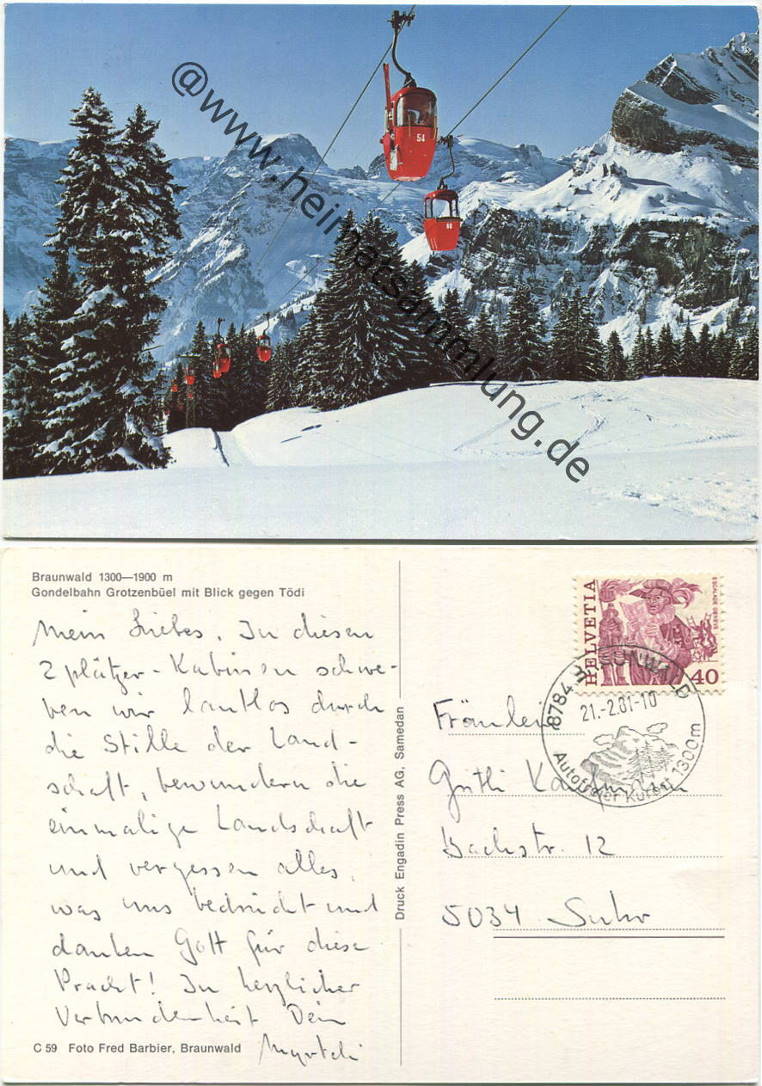 54
60
@www.heimatsammlung.de
Braunwald 1300—1900 m
Gondelbahn Grotzenbüel mit Blick gegen Tödi
Mein Liebes, In diesen
2 plätzer-Kabinen schwe-
ben wir lautlos durch
die Stille der Land-
schaft, bewundern die
einmalige Landschaft
und vergessen alles,
was uns bedrückt und
danken Gott für diese
Pracht! In herzlicher
Verbundenheit Dein
C 59 Foto Fred Barbier, Braunwald
Druck Engadin Press AG, Samedan
HELVETIA
ESCALADE GENÈVE
40
8784 BRAUNWALD
21.-2.81-10
Autofreier Kurort 1300m
Fräulein
Bachstr. 12
5034 Suhr